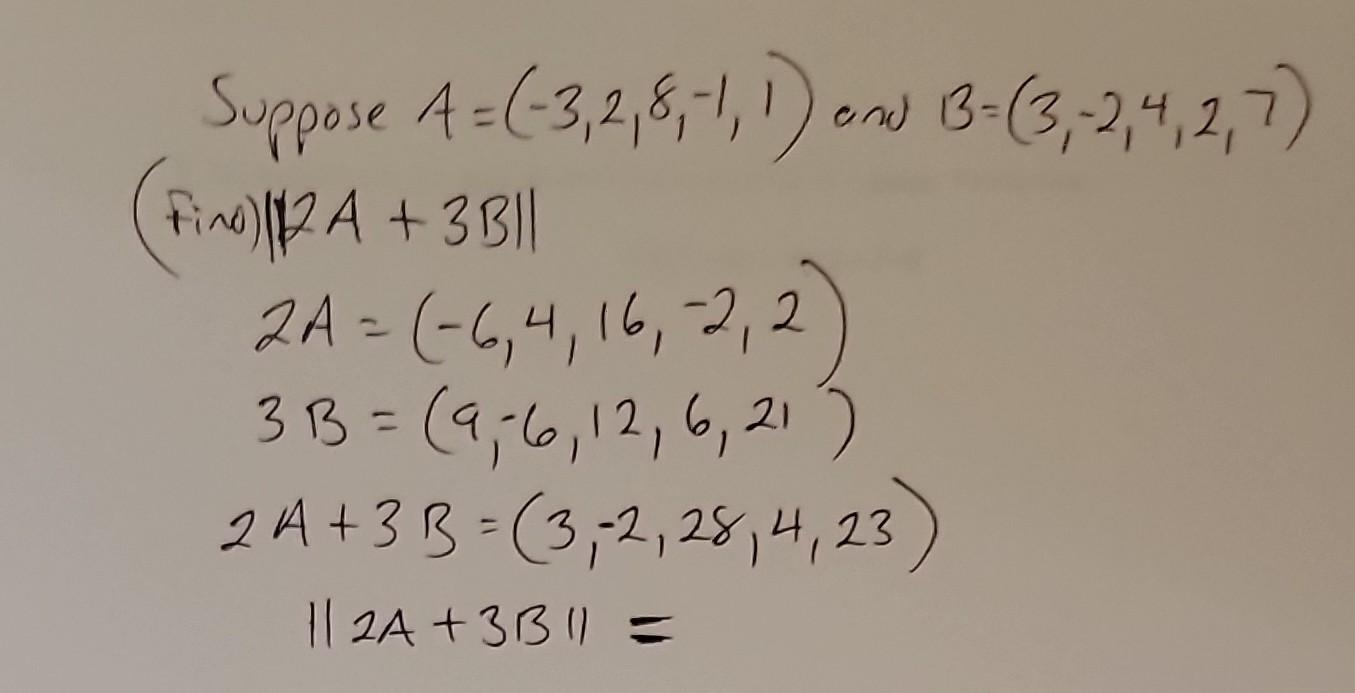 Suppose A=(-3,2,8,-1,1) and B=(3,-2,4,2,7)
(Find)||2A + 3B||
2A = (-6,4,16,-2,2)
3B = (9,-6,12,6,21)
2A+3B=(3,-2,28,4,23)
||2A+3B|| =